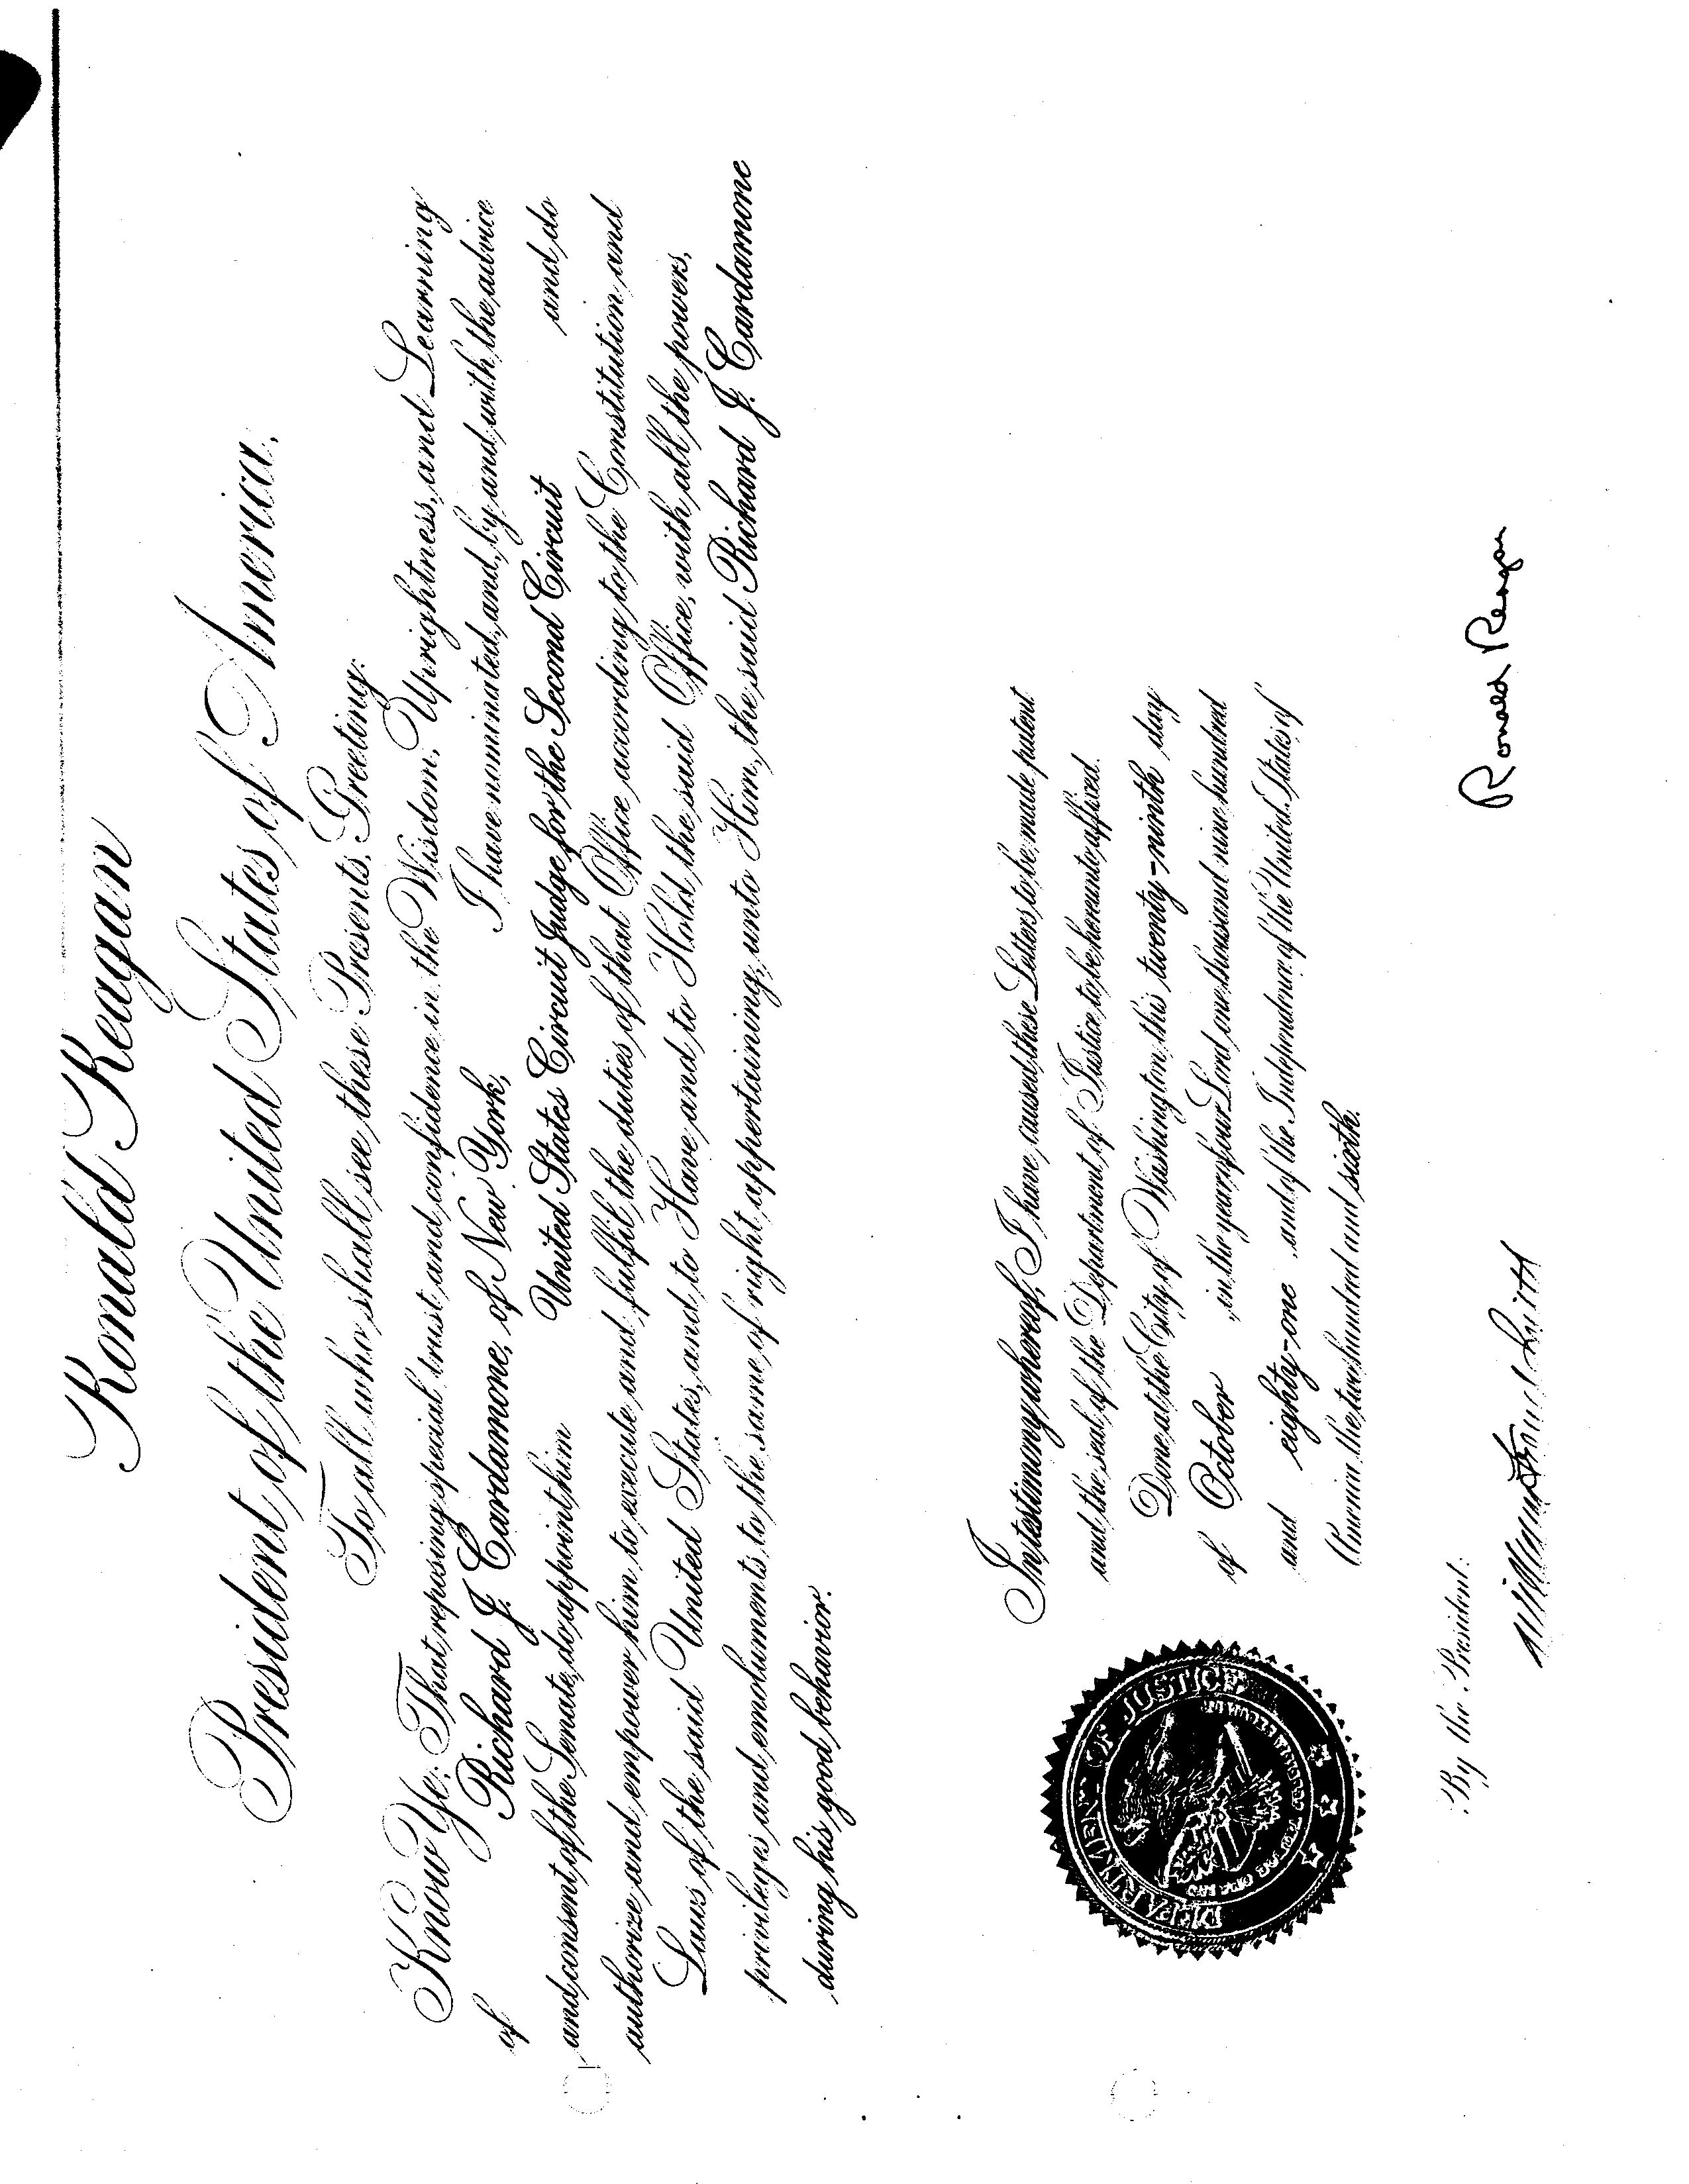 Ronald Reagan
President of the United States of America,
To all who shall see these Presents, Greeting:
Know Ye: That reposing special trust and confidence in the Wisdom, Uprightness, and Learning
of Richard J. Cardamone, of New York, I have nominated, and, by and with the advice
and consent of the Senate, do appoint him United States Circuit Judge for the Second Circuit and do
authorize and empower him to execute and fulfil the duties of that Office according to the Constitution and
Laws of the said United States, and to Have and to Hold the said Office, with all the powers,
privileges and emoluments to the same of right appertaining, unto Him, the said Richard J. Cardamone
during his good behavior.
In testimony whereof, I have caused these Letters to be made patent
and the seal of the Department of Justice to be hereunto affixed.
Done at the City of Washington this twenty-ninth day
of October in the year of our Lord one thousand nine hundred
and eighty-one and of the Independence of the United States of
America the two hundred and sixth.
DEPARTMENT OF JUSTICE
Ronald Reagan
By the President:
William French Smith